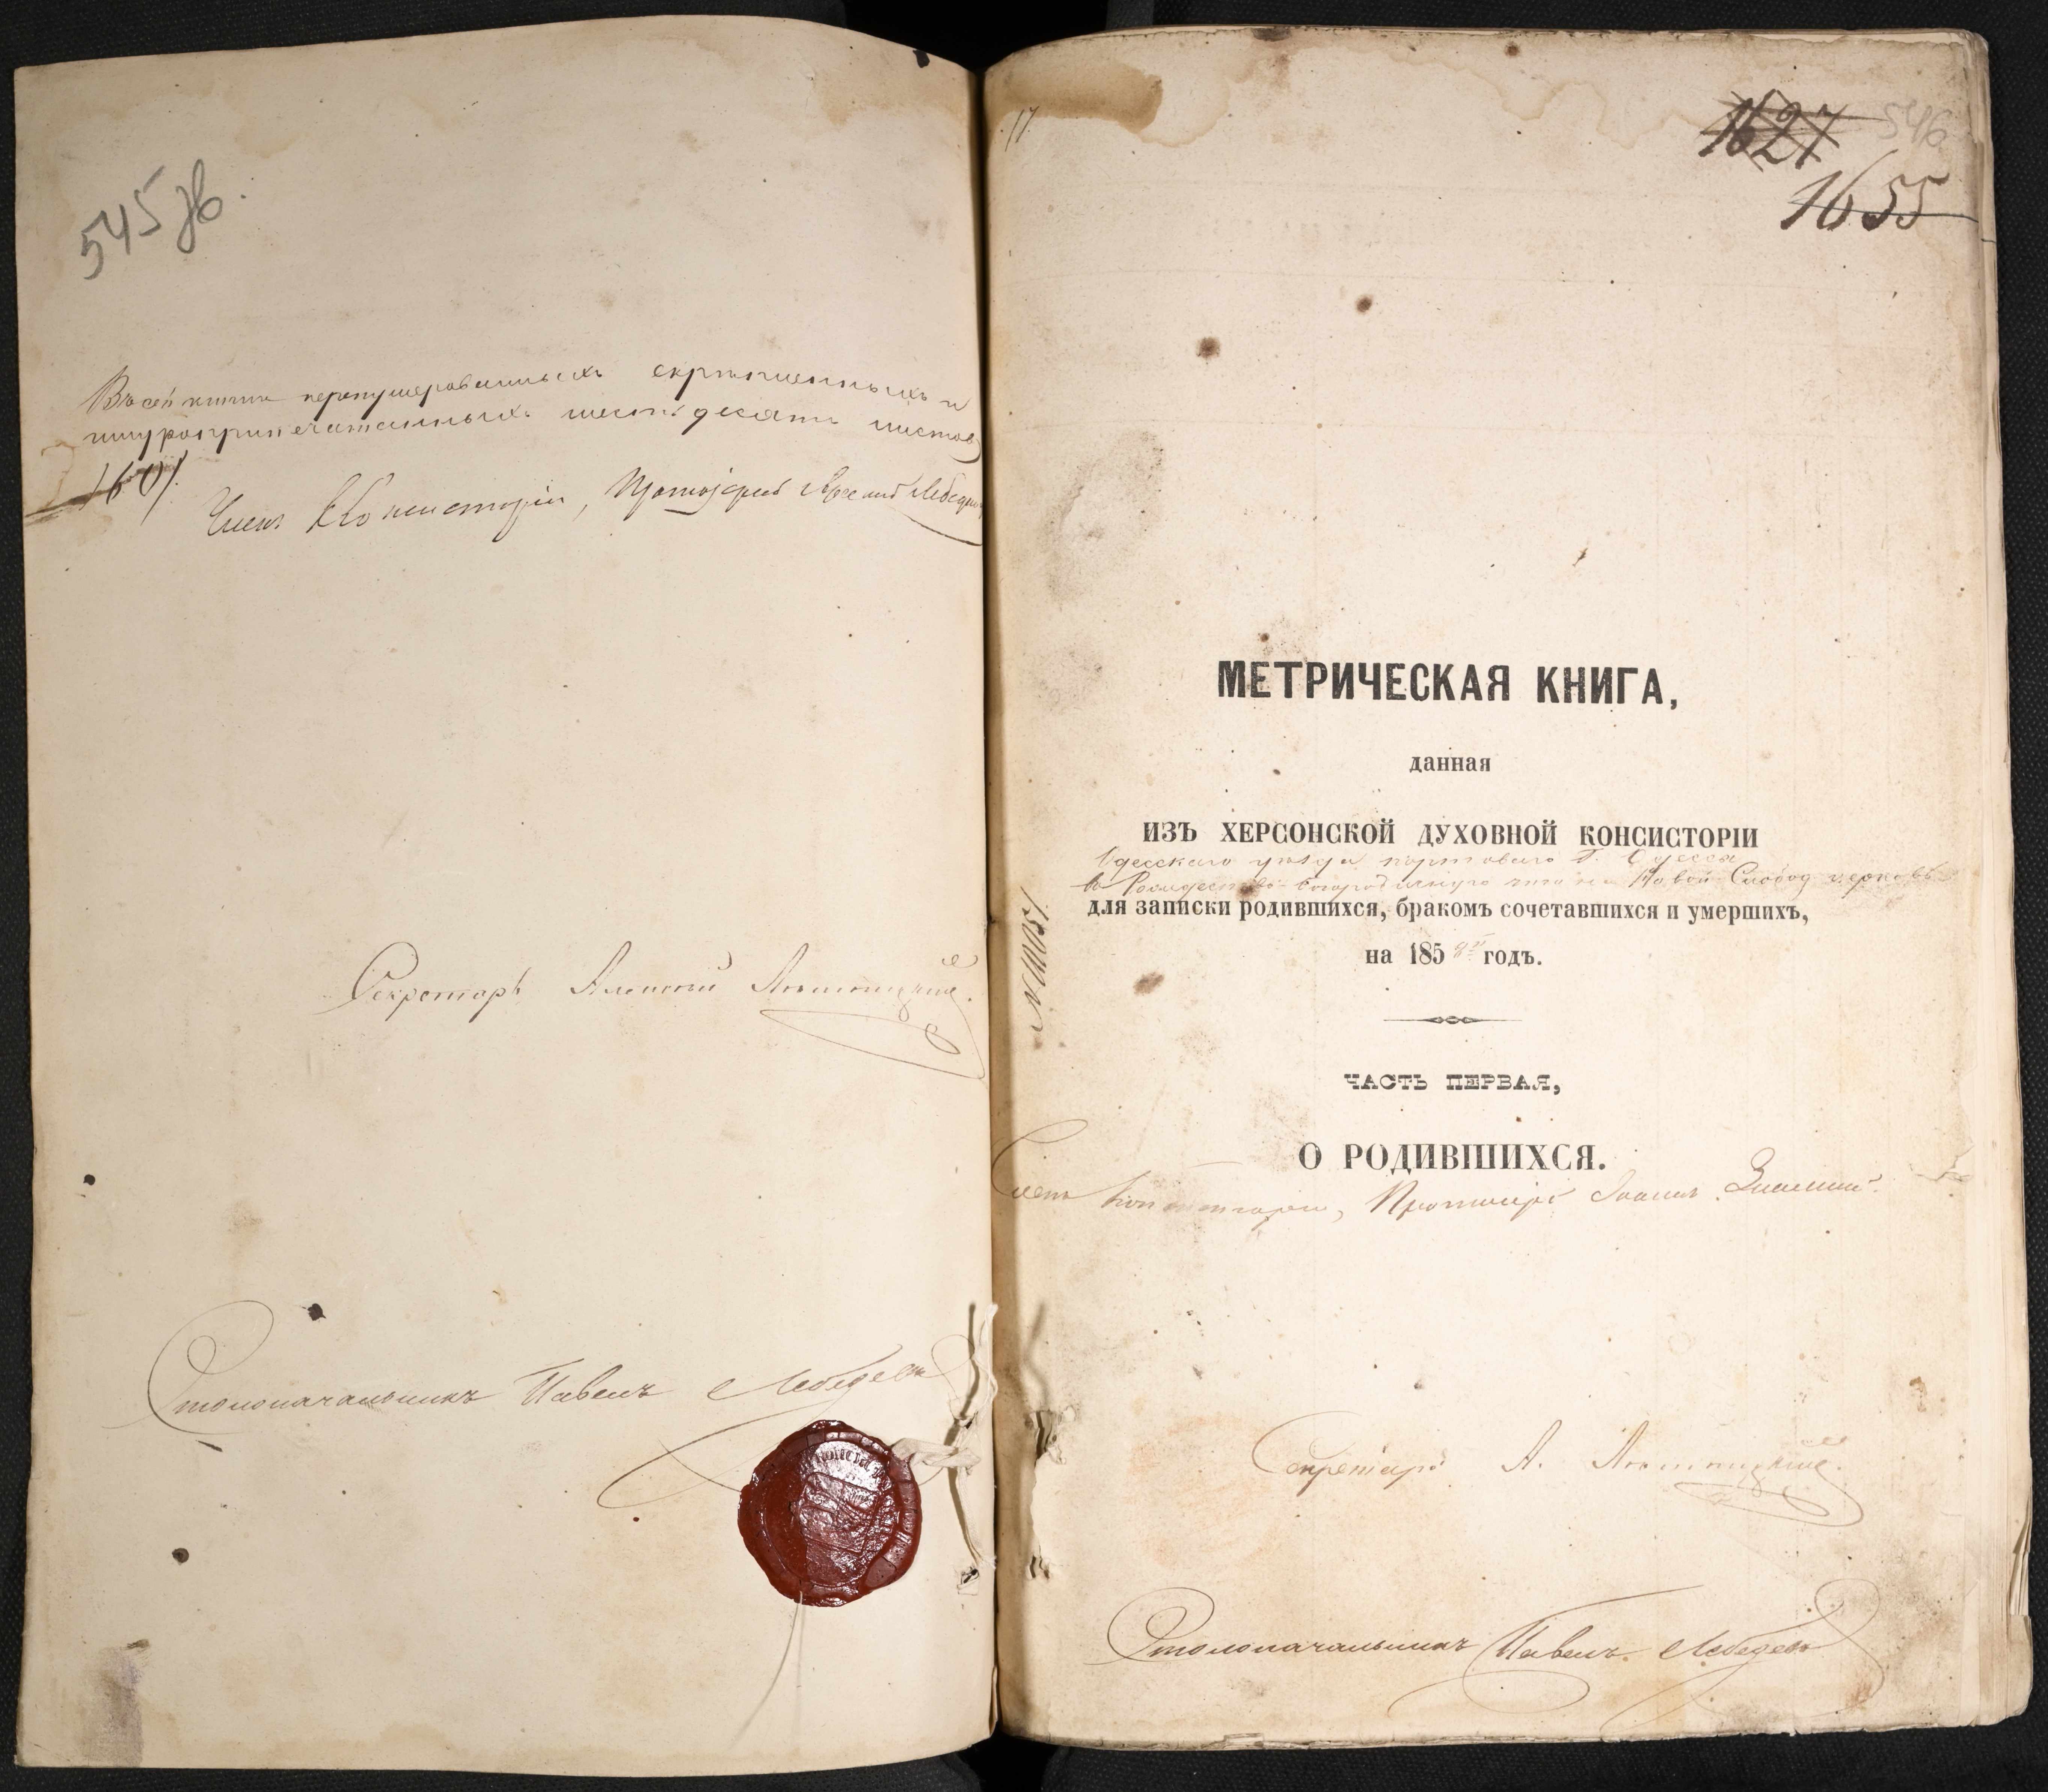 545 зв.
Въ сей книгѣ перенумерованныхъ скрѣпленныхъ и
шнуроприпечатанныхъ шестьдесятъ листовъ
/60/.
Членъ Консисторіи, Протоіерей Арсеній Лебединцевъ
Секретарь Алексій
Столоначальникъ Павелъ Лебедевъ
17.
1627 546
1655
МЕТРИЧЕСКАЯ КНИГА,
данная
ИЗЪ ХЕРСОНСКОЙ ДУХОВНОЙ КОНСИСТОРІИ
Одесскаго уѣзда портоваго г. Одессы
въ Рождество-Богородичную что на Новой-Слободѣ церковь
для записки родившихся, бракомъ сочетавшихся и умершихъ,
на 1858й годъ.
ЧАСТЬ ПЕРВАЯ,
О РОДИВШИХСЯ.
Членъ Консисторіи, Протоіерей Іоаннъ Знаменскій
Секретарь А.
Столоначальникъ Павелъ Лебедевъ